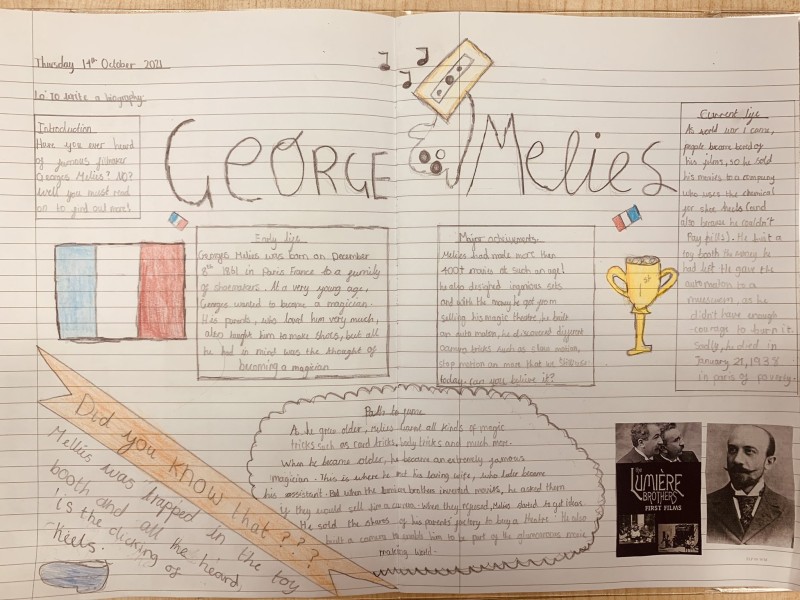 Thursday 14th October 2021
Lo: To write a biography.
GeORGE Melies
Introduction
Have you ever heard
of famous filmaker
Georges Melies? NO?
Well you must read
on to find out more!
Early life
Georges Melies was born on December
8th 1861 in Paris France to a family
of shoemakers. At a very young age,
Georges wanted to become a magician.
His parents, who loved him very much,
also taught him to make shoes, but all
he had in mind was the thought of
becoming a magician
Major achievments
Melies had made more than
400+ movies at such an age!
he also designed ingenious sets
and with the money he got from
selling his magic theatre, he built
an automaton, he discovered different
camera tricks such as slow motion,
stop motion and more that we still use
today. can you believe it?
1st
Current life
As world war 1 came,
people became bored of
his films, so he sold
his movies to a company
who uses the chemical
for shoe heels (and
also because he couldn't
Pay bills). He built a
toy booth the money he
had left. He gave the
automaton to a
museum, as he
didn't have enough
courage to burn it.
Sadly, he died in
January 21, 1938
in paris of poverty.
Path to fame
As he grew older, melies learnt all kinds of magic
tricks such as card tricks, body tricks and much more.
When he became older, he became an extremely famous
magician. This is where he met his loving wife, who later became
his assistant. But when the lumiere brothers invented movies, he asked them
if they would sell him a camera. When they refused, Melies started to get ideas.
He sold the shares of his parents' factory to buy a theatre. He also
built a camera to enable him to be part of the glamourous movie
making world.
Did you know that???
Mellies was trapped in the toy
booth and all the heard,
is the clicking of
heels.
the
LUMIÈRE
BROTHERS'
FIRST FILMS